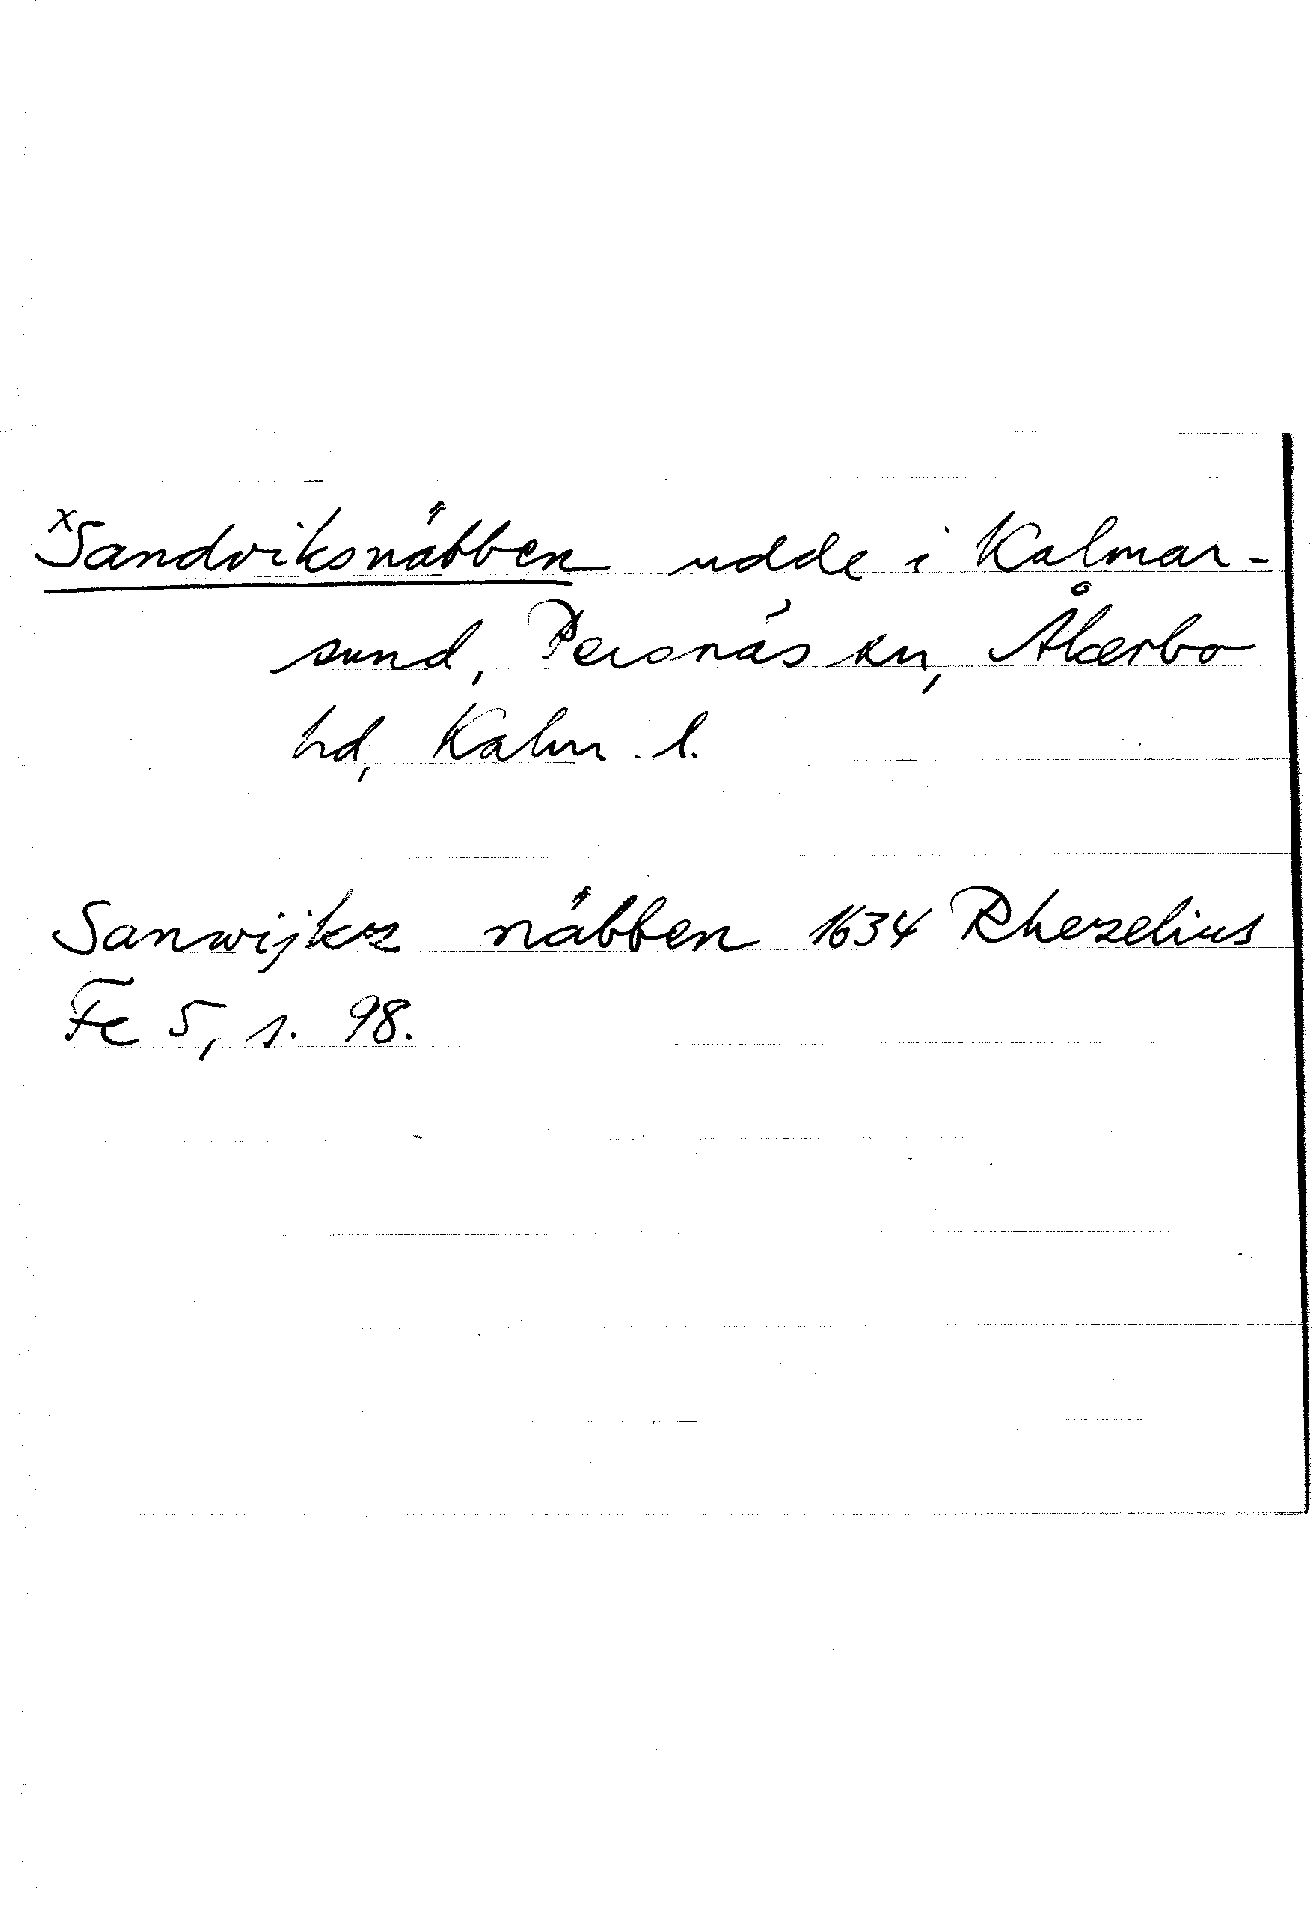 xSandviksnäbben udde i Kalmar-
sund, Persnäs sn, Åkerbo
hd, Kalm. l.
Sanwijkz näbben 1634 Rhezelius
Fe 5, s. 98.